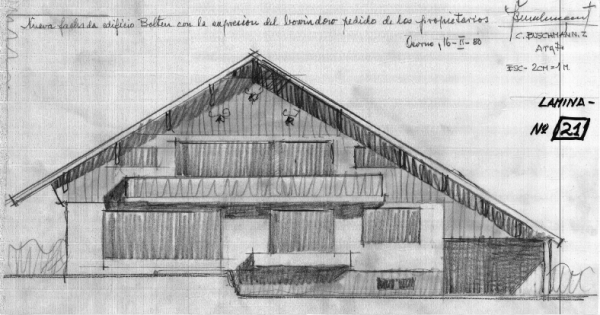 Nueva fachada edificio Bolten con la expresion del bowindow pedido de los propietarios
Osorno, 16-II-80
C. BUSCHMANN. Z
ARQTO
ESC- 2CM=1M
LAMINA-
Nº 21